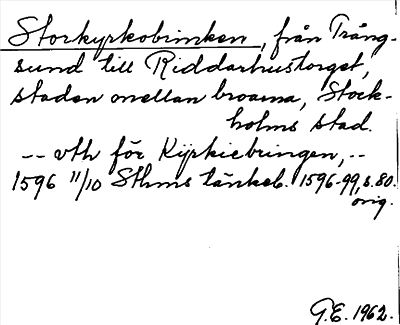 Storkyrkobrinken, från Trång-
sund till Riddarhustorget,
staden mellan broarna, Stock-
holms stad.
-- vth för Kyrkiebringen, --
1596 11/10 Sthms tänkeb. 1596-99, s. 80.
orig.
G.E. 1962.